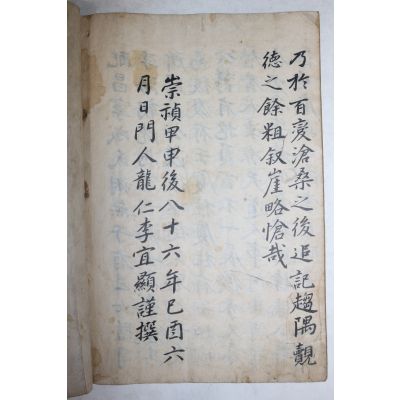 乃於百変滄桑之後追記趨隅覿
徳之餘粗叙崖略愴哉
崇禎甲申後八十六年己酉六
月日門人龍仁李宜顯謹撰